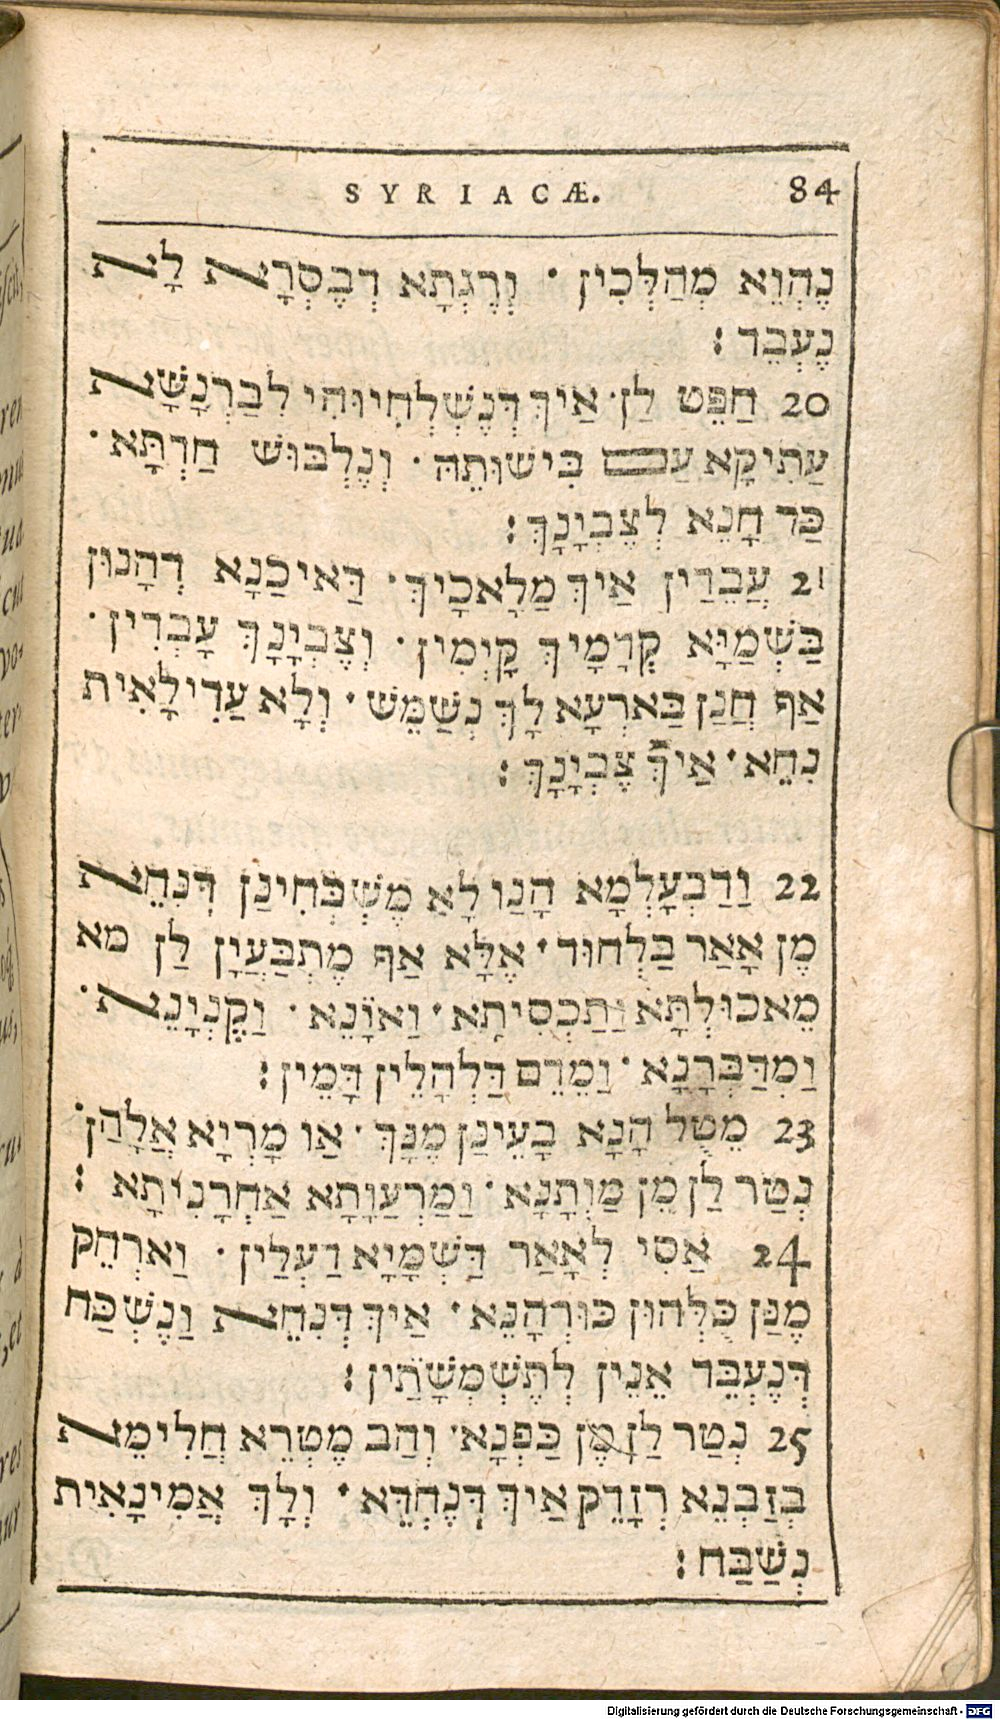 SYRIACÆ. 84
נֶהְוֵא מְהַלְּכִין · וְרֶגְתָא דְבֶסְרָא לָא
נֶעְבֵּד :
20 חַפֵּט לַן · אַיךְ דְּנֶשְׁלְחִיוּהִי לְבַרְנָשָׁא
עַתִיקָא עַם בִּישׁוּתֵהּ · וְנֶלְבּוּשׁ חַדְתָּא ·
כַּד חָנֵא לְצֶבְיָנָךְ :
21 עֲבֵדַין אַיךְ מַלְאכָיךְ · דַּאיכַנָא דְהָנוּן
בַּשְׁמַיָּא קְדָמָיךְ קָיְמִין · וְצֶבְיָנָךְ עָבְדִין ·
אַף חֲנַן בַּארְעָא לָךְ נְשַׁמֵּשׁ · וְלָא עַדִילָאִית
נִחֵא · אַיךְ צֶבְיָנָךְ :
22 וַדַבְעָלְמָא הָנַו לָא מִשְׁבְּחִינַן דְּנִּחֵא
מֶן אָאַר בַּלְחוּד · אֶלָּא אַף מֶתְבַּעֲיָן לַן מא
מֵאכוּלְתָּא וַּתַּכְסִיתָא · וַאוָּנֵא · וַקֶנְיָנֵא ·
וַמְדַּבְּרָנָא · וַמֵדֵם דַּלְהָלֵין דָּמֵין :
23 מֵטֻל הָנָא בָעֵינַן מֶנָּךְ · אַו מָרְיָא אֲלָהַן ·
נְטַר לַן מֵן מַוְתָנָא · וַמַרְעַוָתָא אַחְרָנִיתָא :
24 אַסִי לְאָאַר דַּשְׁמָיָא דַעְלַין · וַארְחֵק
מֶנַּן כֻּלְּהוּן כּוּרְהָנֵא · אַיךְ דְּנִחֵא וַנֶשְׁכַּח
דְּנֶעְבֵּד אֵנֵין לְתֶשְׁמְשָׁתַּין :
25 נְטַר לַן מֶן כַּפְנָא · וְהַב מֶטְרֵא חֲלִימֵא
בְּזַבְנֵא רְזָדֵק אַיךְ דְּנֶחְדֵּא · וְלָךְ אֲמִינָאִית
נְשַׁבַּח :
Digitalisierung gefördert durch die Deutsche Forschungsgemeinschaft - DFG